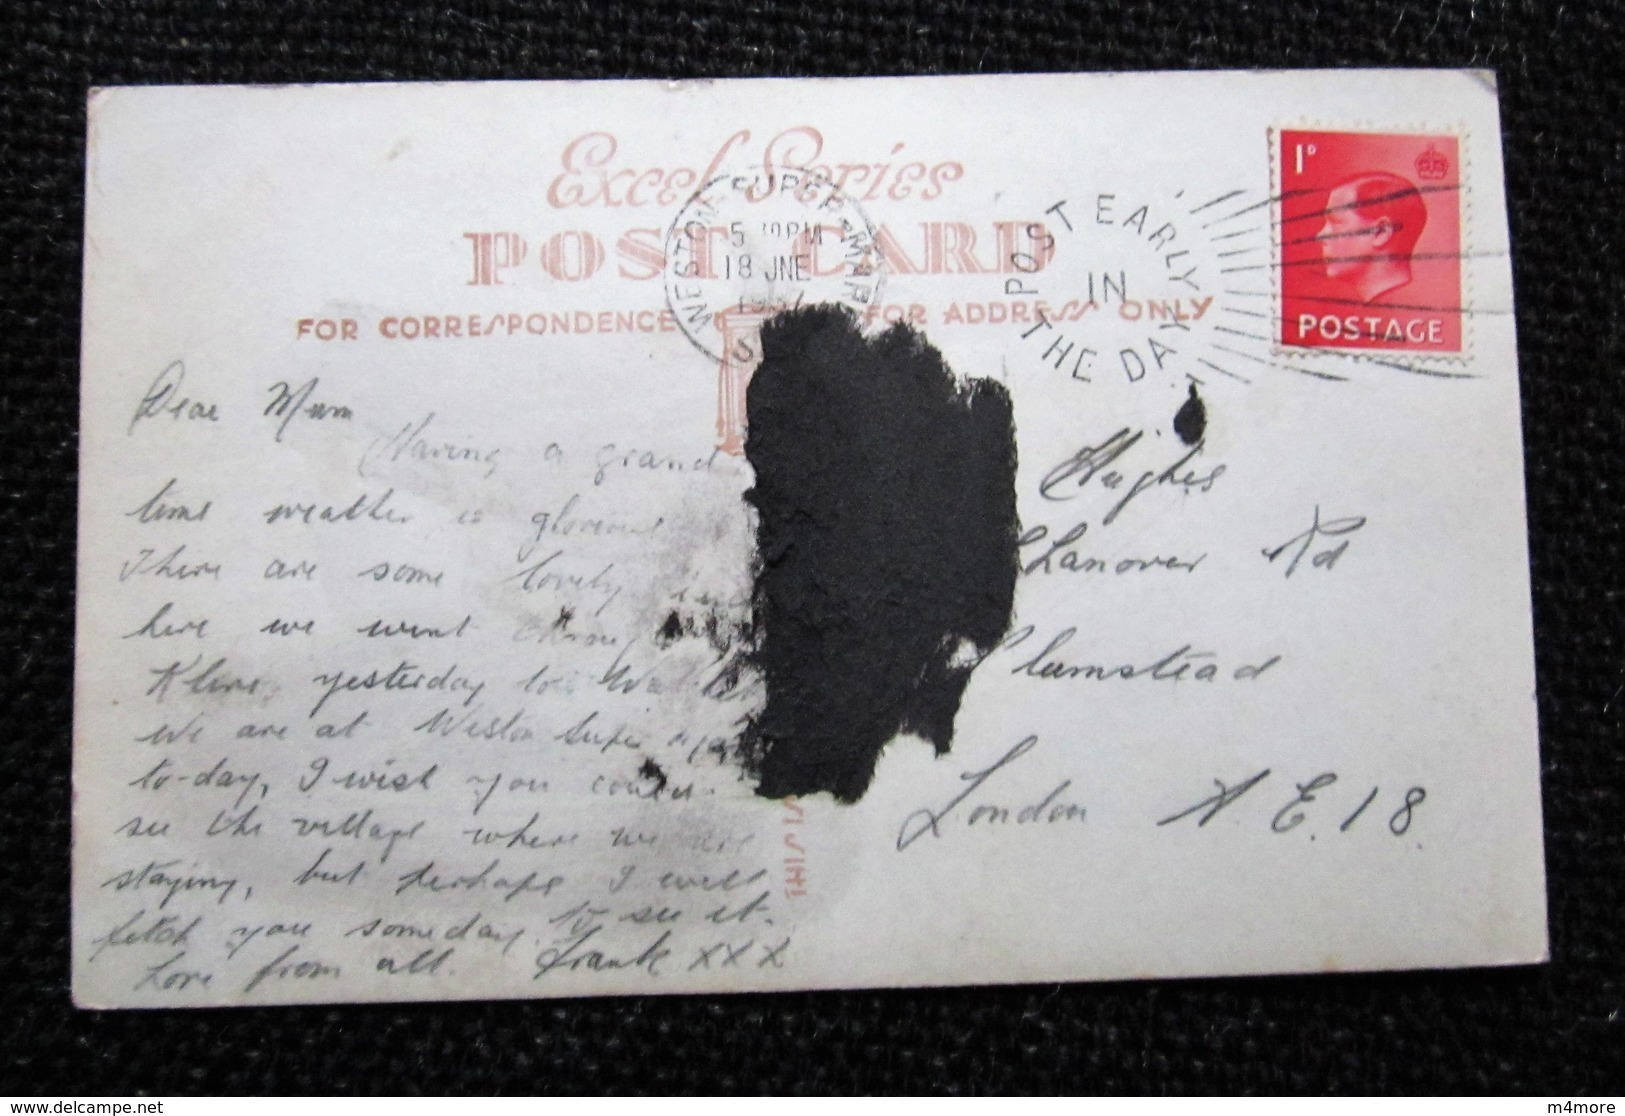 Excel Series
POST CARD
FOR CORRESPONDENCE FOR ADDRESS ONLY
WESTON SUPER-MARE
PM
18 JNE
POST EARLY
IN
THE DAY
1D
POSTAGE
Dear Mum
Having a grand
time weather is
There are some lovely
here we went
yesterday to
We are at Weston
to-day, I wish you
see the village where we are
staying, but perhaps I will
fetch you someday to see it.
Love from all. Frank XXX
Hughes
Rd
Plumstead
London E.18
THIS IS
m4more